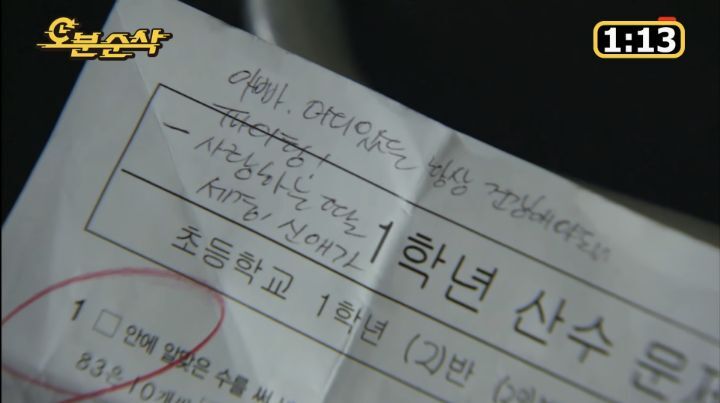 오분순삭
1:13
아빠. 어디있든 항상 건강해야돼
화이팅!
- 사랑하는 딸
세경, 신애가
1학년 산수
초등학교 1학년 (2)반
1 □ 안에 알맞은 수를 써
83은 10개씩